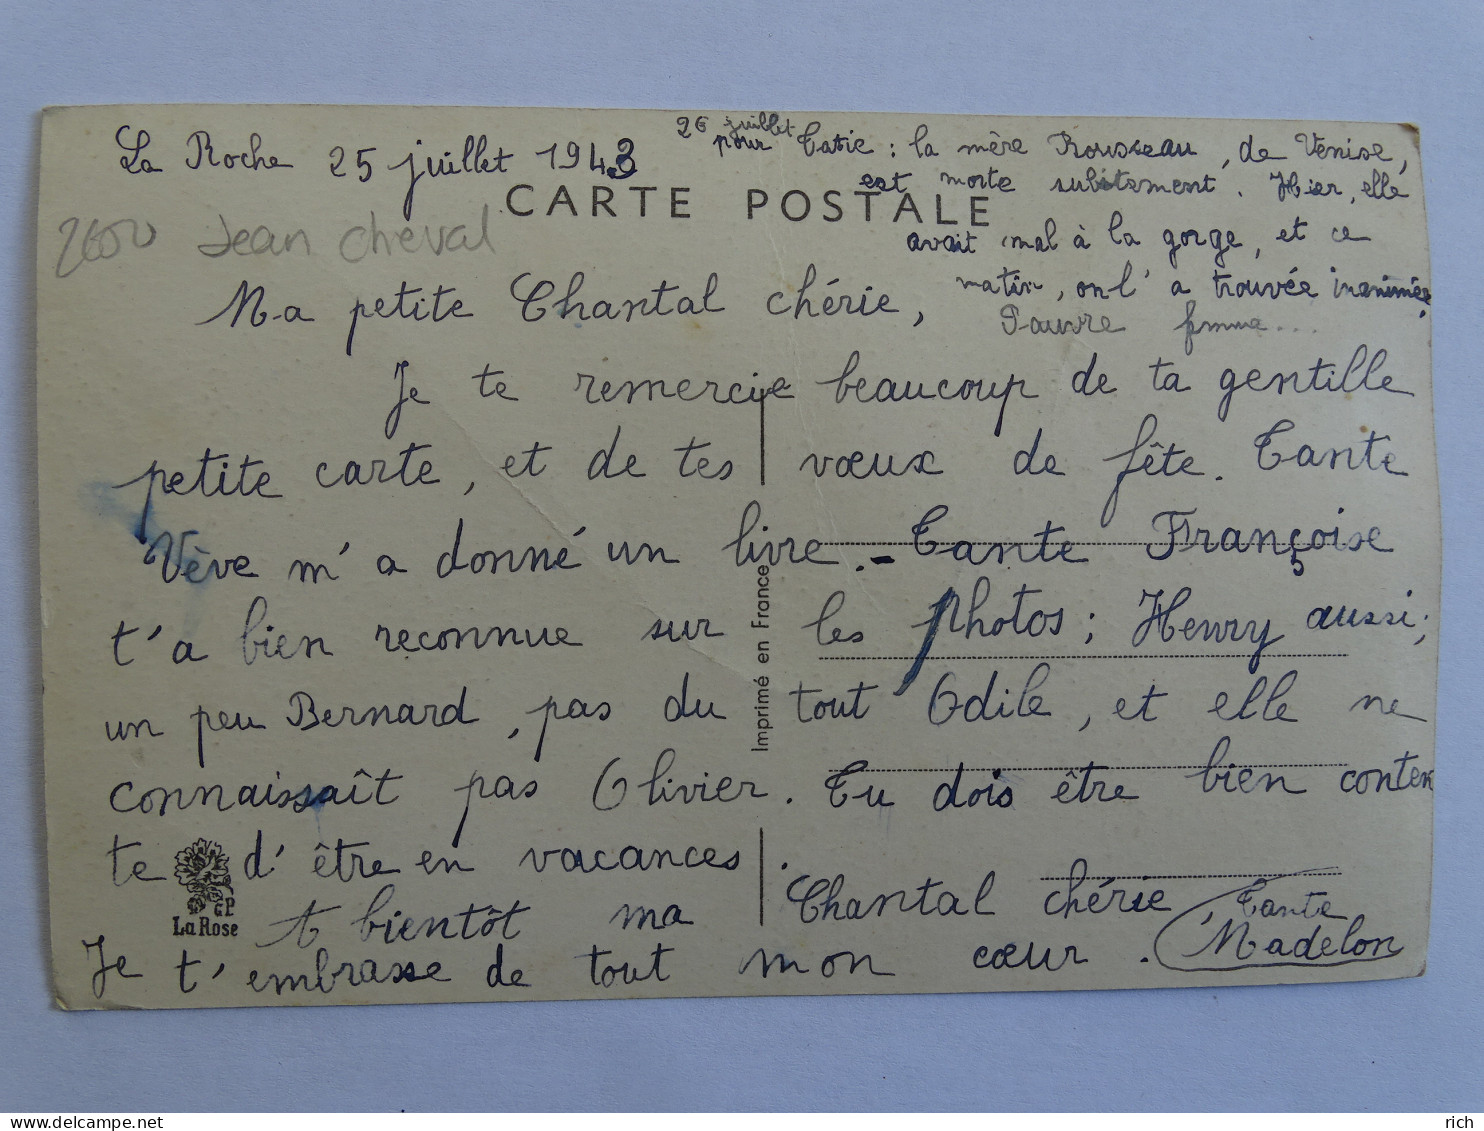 La Roche 25 juillet 1943
26 juillet
pour Tatie : la mère Rousseau, de Venise,
est morte subitement. Hier, elle
avait mal à la gorge, et ce
matin, on l'a trouvée inanimée.
Pauvre femme...
CARTE POSTALE
Jean Cheval
Ma petite Chantal chérie,
Je te remercie beaucoup de ta gentille
petite carte, et de tes vœux de fête. Tante
Vève m'a donné un livre. - Tante Françoise
t'a bien reconnue sur les photos ; Henry aussi ;
un peu Bernard, pas du tout Odile, et elle ne
connaissaît pas Olivier. Tu dois être bien conten
te d'être en vacances.
A bientôt ma Chantal chérie,
Je t'embrasse de tout mon cœur.
Tante
Madelon
Imprimé en France
GP
La Rose
www.delcampe.net
rich